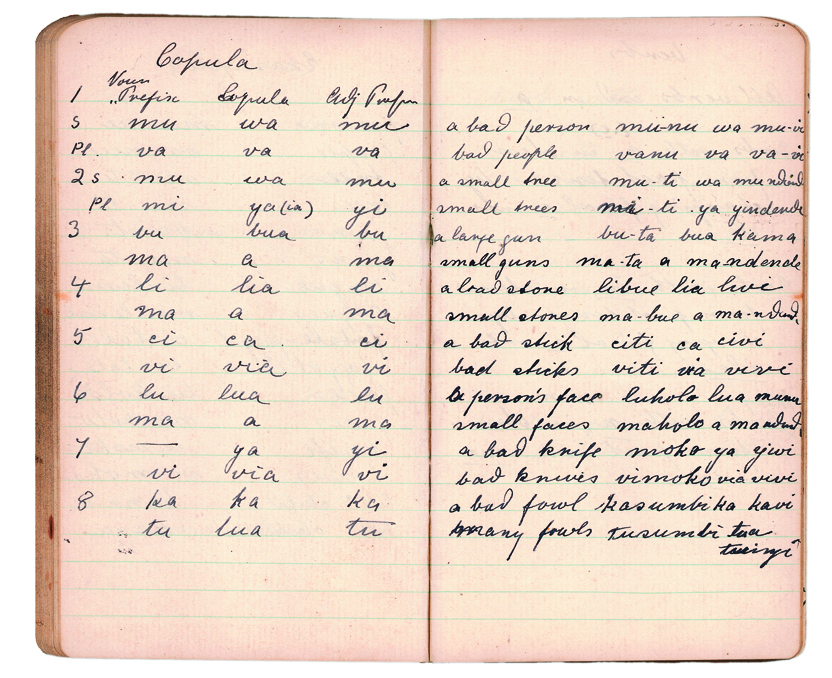 Copula
Noun
1 " Prefix Copula Adj Prefix
S mu wa mu a bad person munu wa mu-vi
Pl. va va va bad people vanu va va-vi
2 S mu wa mu a small tree mu-ti wa mundend
Pl mi ya(ia) yi small trees mi-ti ya yindende
3 bu bua bu a large gun bu-ta bua kama
ma a ma small guns ma-ta a ma-ndende
4 li lia li a bad stone libue lia livi
ma a ma small stones ma-bue a ma-ndend.
5 ci ca ci a bad stick citi ca civi
vi via vi bad sticks viti via vivi
6 lu lua lu a person's face luholo lua munu
ma a ma small faces maholo a mandend.
7 — ya yi a bad knife moko ya yivi
vi via vi bad knives vimoko via vivi
8 ka ka ka a bad fowl kasumbi ka kavi
tu lua tu many fowls tusumbi tua
tuingi